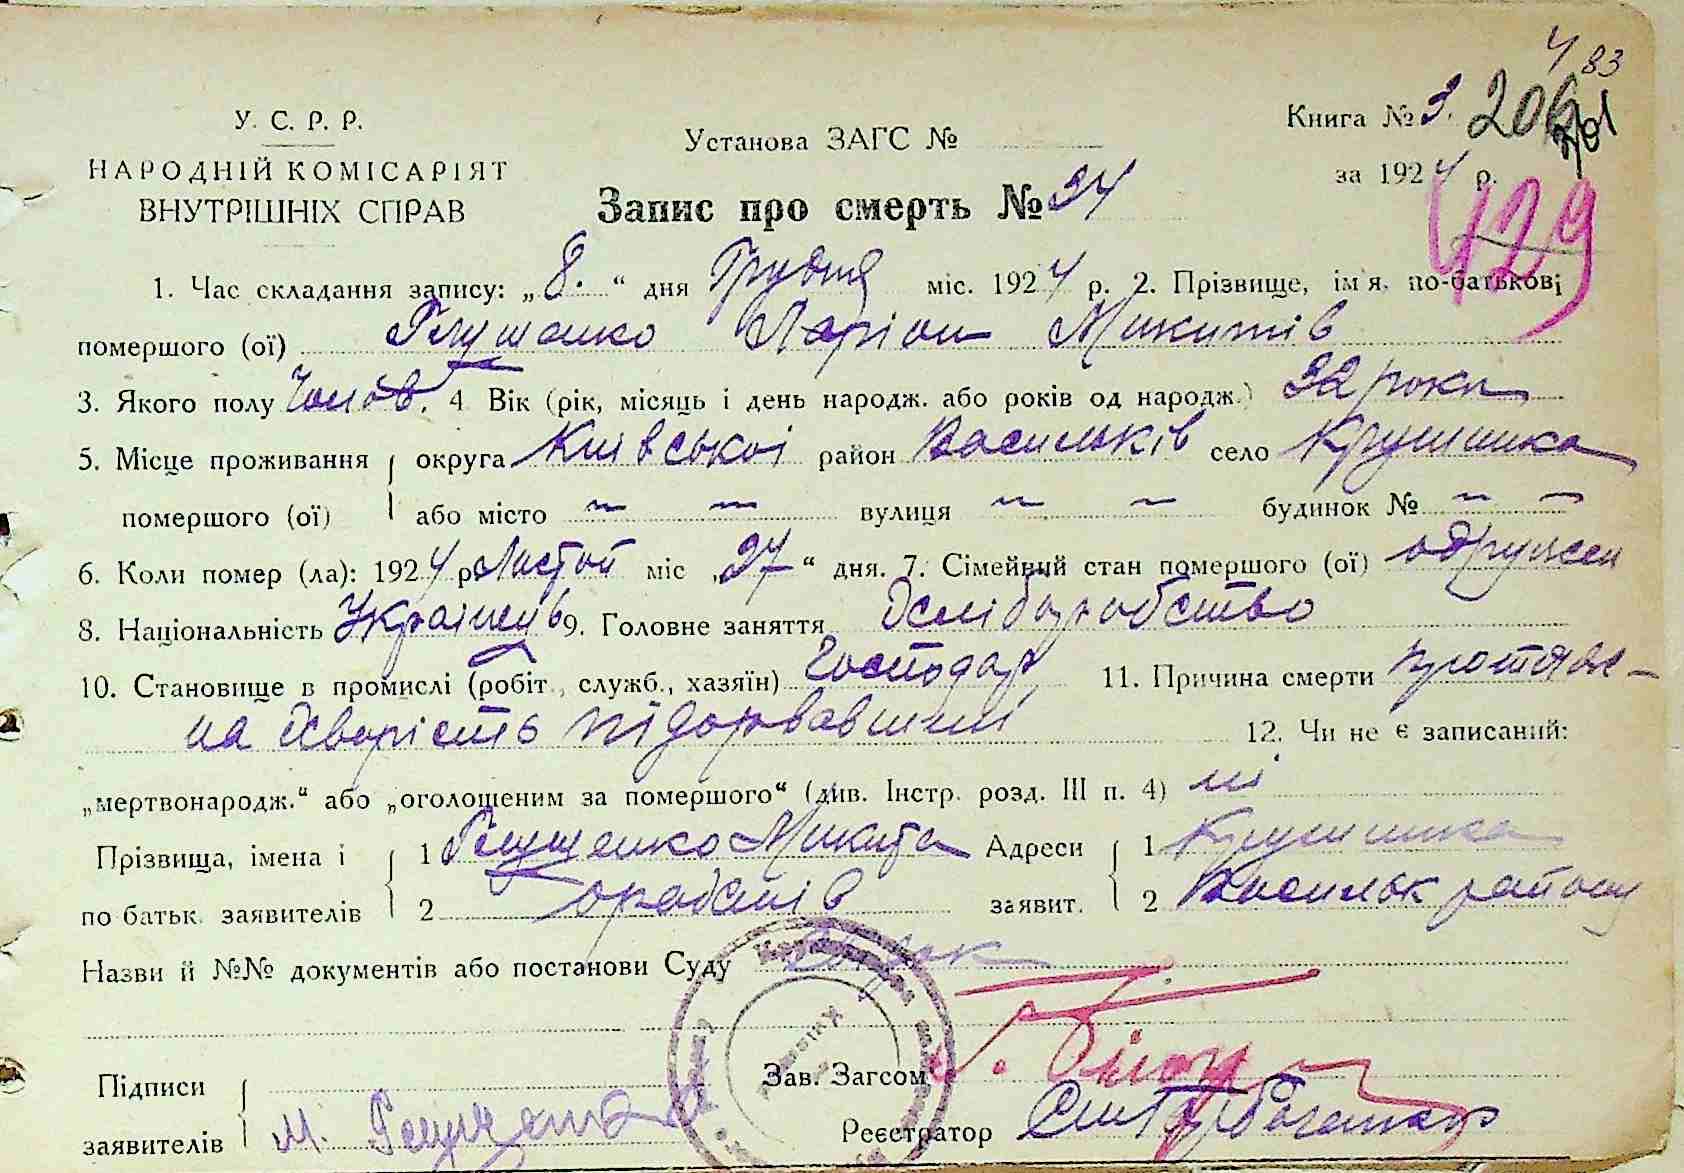 4 83
У. С. Р. Р.
НАРОДНІЙ КОМІСАРІЯТ
ВНУТРІШНІХ СПРАВ
Установа ЗАГС №
Книга № 3. 206 201
за 1924 р.
429
Запис про смерть № 34
1. Час складання запису: „8.“ дня Грудня міс. 1924 р. 2. Прізвище, ім'я, по-батькові
помершого (ої) Глущенко Ларіон Микитів
3. Якого полу Чолов. 4 Вік (рік, місяць і день народж. або років од народж.) 32 роки
5. Місце проживання округа Київської район Васильків село Крушинка
помершого (ої) або місто — — вулиця — — будинок № — —
6. Коли помер (ла): 1924 р. Листоп міс „27“ дня. 7. Сімейний стан помершого (ої) одружен
8. Національність Українець 9. Головне заняття Хліборобство
10. Становище в промислі (робіт., служб., хазяїн) Господар 11. Причина смерти протяж-
на хворість підорвавший 12. Чи не є записаний:
„мертвонародж.“ або „оголошеним за помершого“ (див. Інстр. розд. III п. 4) ні
Прізвища, імена і 1 Глущенко Микита Адреси 1 Крушинка
по батьк. заявителів 2 заявит. 2 Васильк району
Назви й №№ документів або постанови Суду
Підписи
заявителів М. Глущенко
Зав. Загсом
Реєстратор